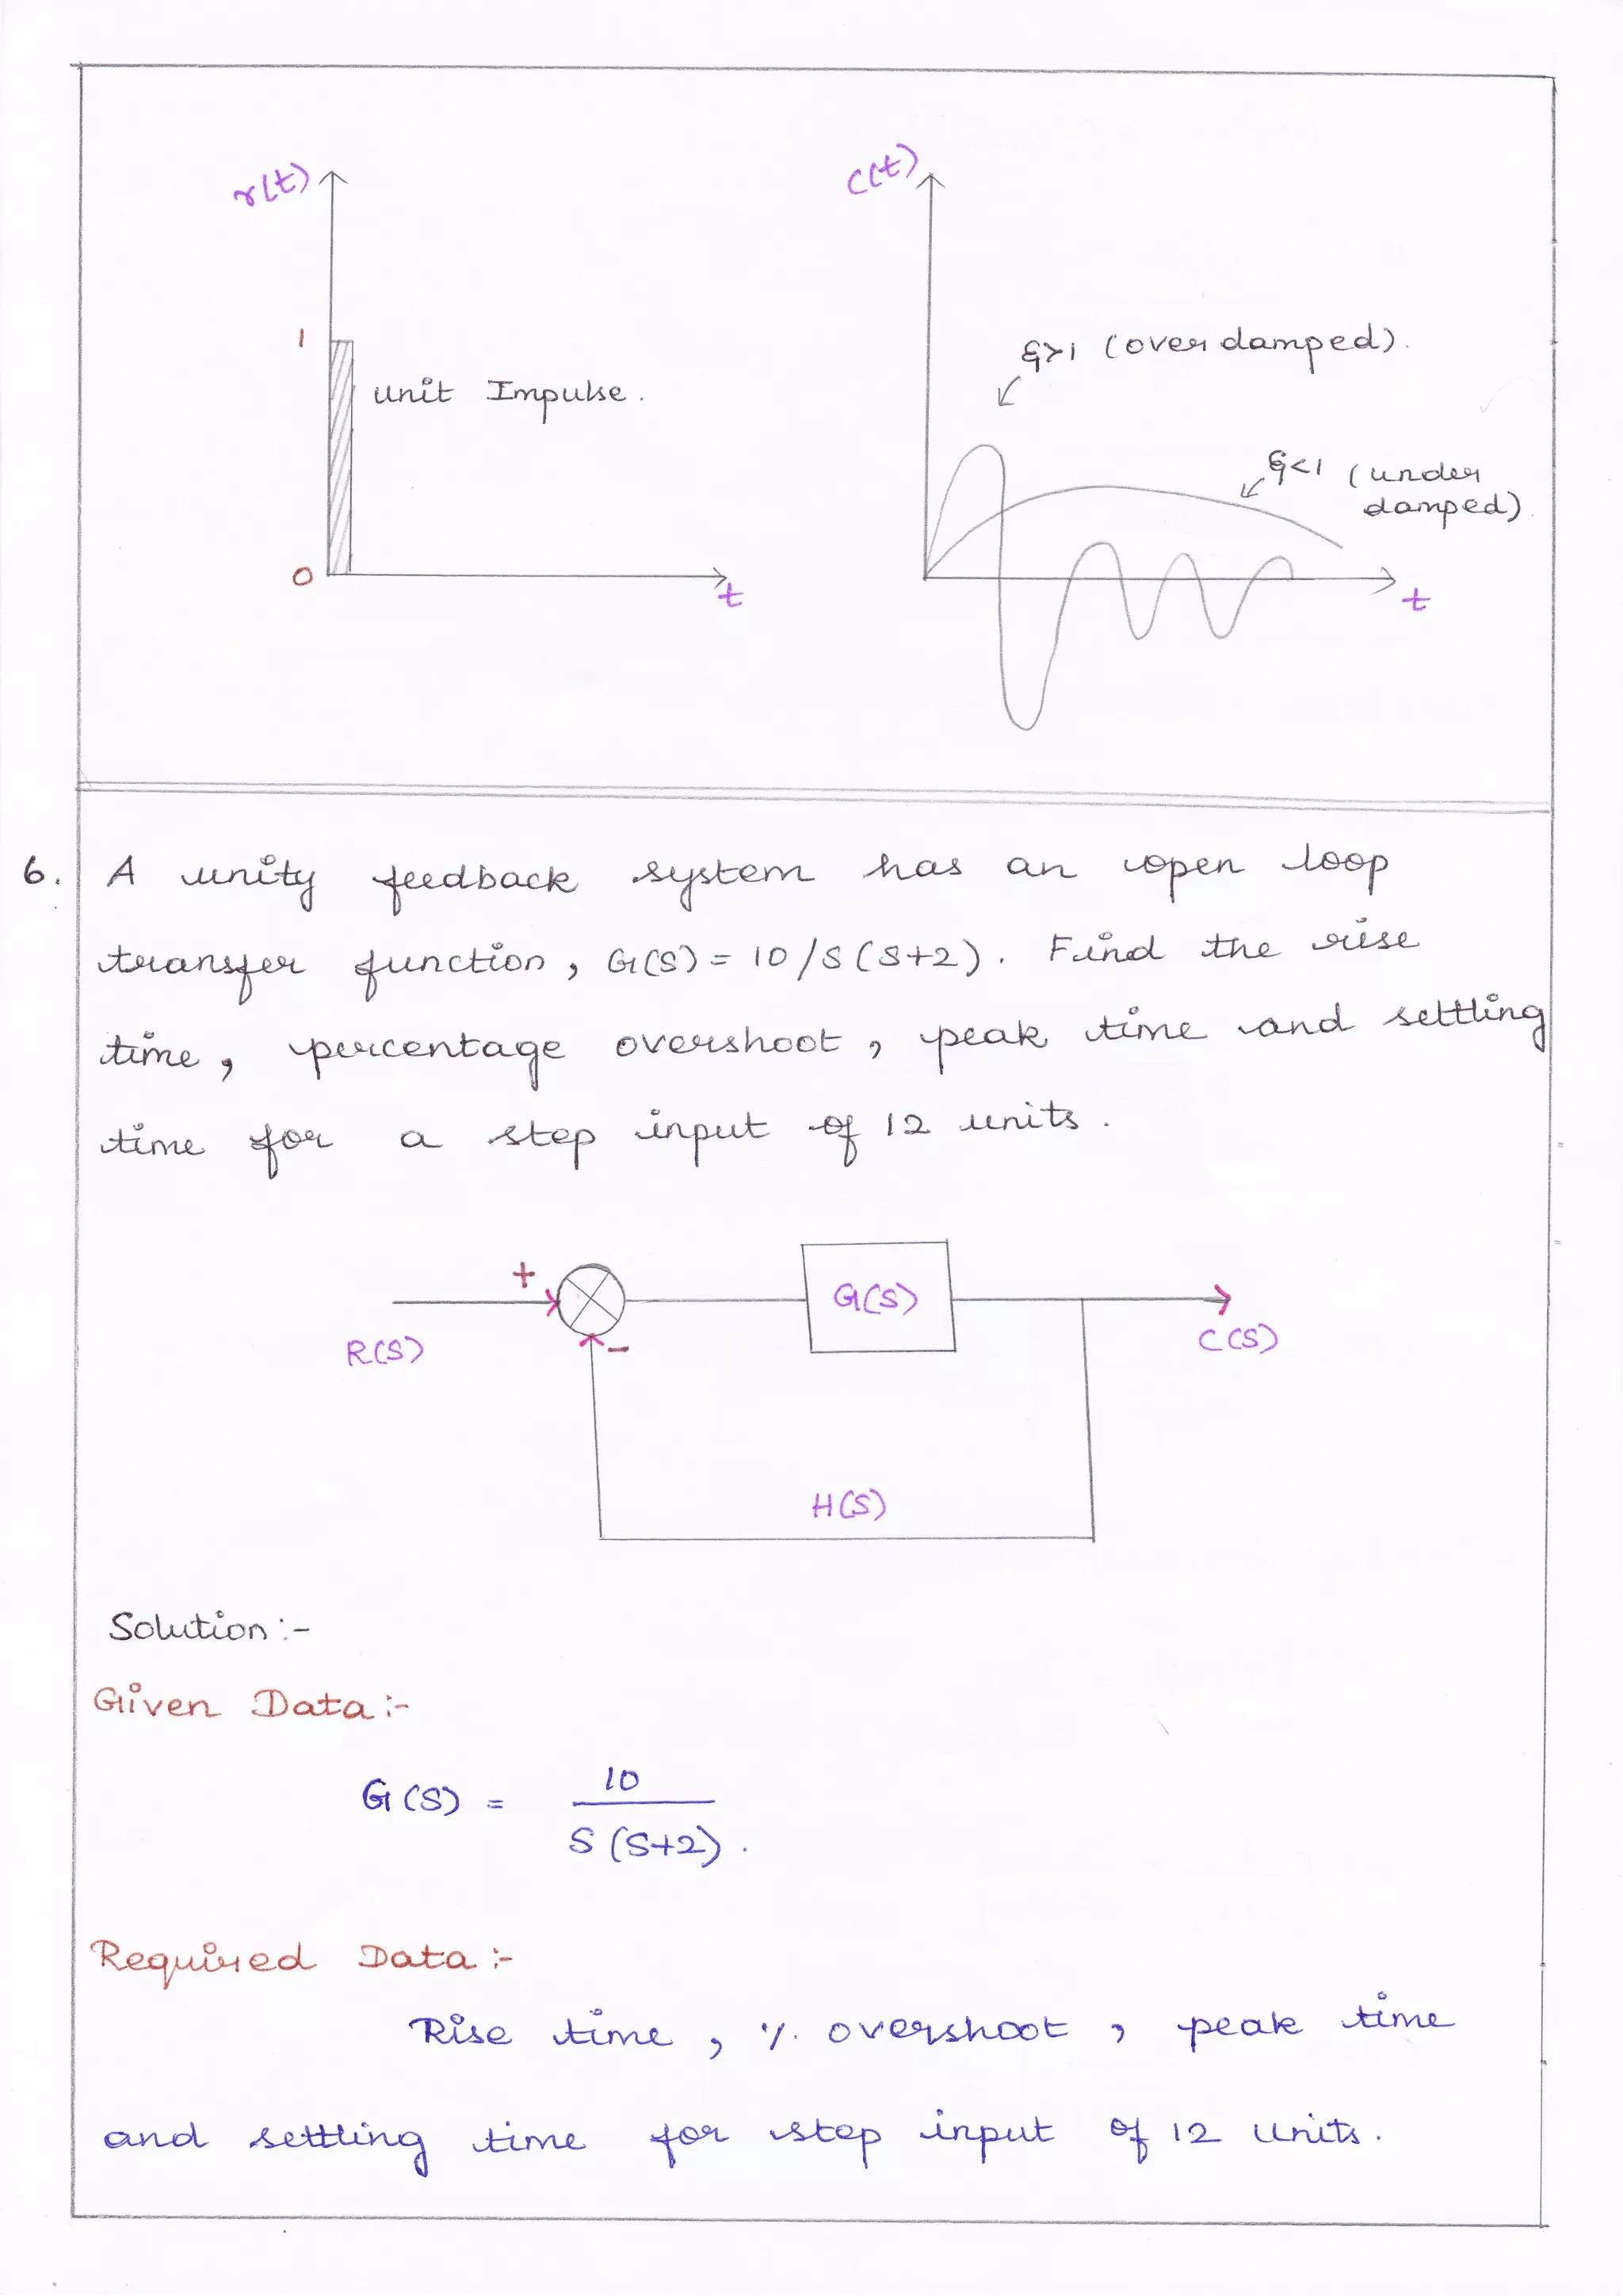 r(t)
1
unit Impulse.
0
t
c(t)
ξ>1 (over damped).
ξ<1 (under
damped).
t
6. A unity feedback system has an open loop
transfer function, G(S) = 10/S(S+2). Find the rise
time, percentage overshoot, peak time and settling
time for a step input of 12 units.
+
G(S)
R(S)
-
C(S)
H(S)
Solution:-
Given Data:-
G(S) = 10
S(S+2).
Required Data:-
Rise time, % overshoot, peak time
and settling time for step input of 12 units.